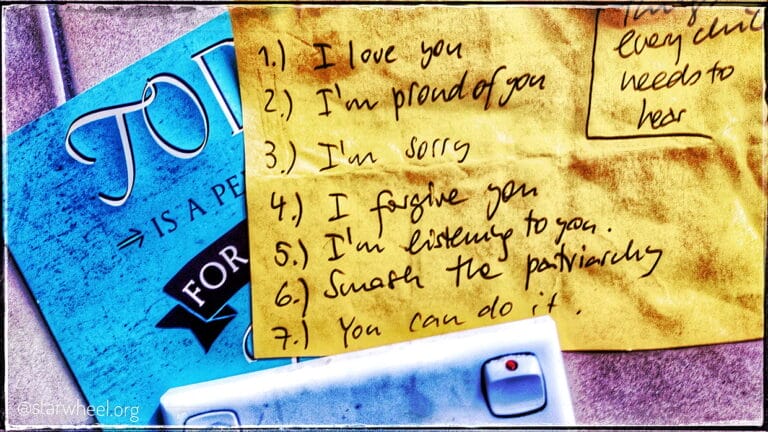 1.) I love you
2.) I'm proud of you
3.) I'm sorry
4.) I forgive you
5.) I'm listening to you.
6.) Smash the patriarchy
7.) You can do it.
every
needs to
hear
IS A
FOR
@starwheel.org